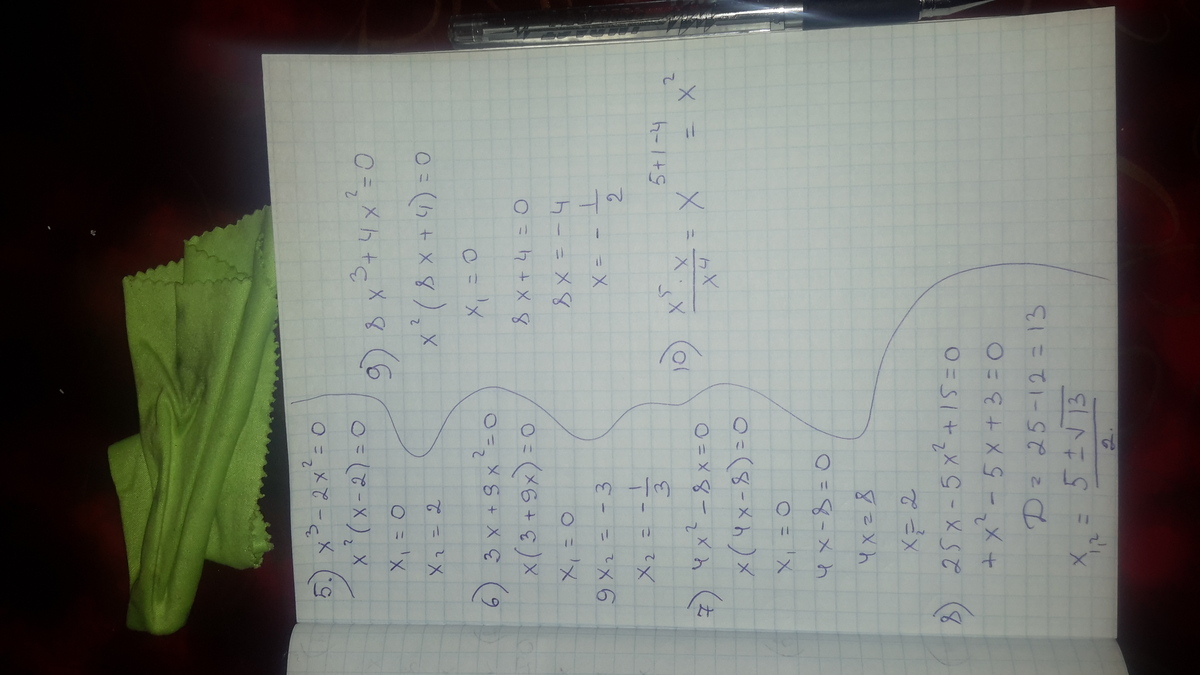 5.) x³ - 2x² = 0
x² (x - 2) = 0
x₁ = 0
x₂ = 2
6) 3x + 9x² = 0
x(3 + 9x) = 0
x₁ = 0
9x₂ = -3
x₂ = -1/3
7) 4x² - 8x = 0
x(4x - 8) = 0
x₁ = 0
4x - 8 = 0
4x = 8
x₂ = 2
8) 25x - 5x² + 15 = 0
+ x² - 5x + 3 = 0
D = 25 - 12 = 13
x₁,₂ = (5 ± √13)/2.
9) 8x³ + 4x² = 0
x² (8x + 4) = 0
x₁ = 0
8x + 4 = 0
8x = -4
x = -1/2
10) (x⁵ · x)/x⁴ = x⁵⁺¹⁻⁴ = x²